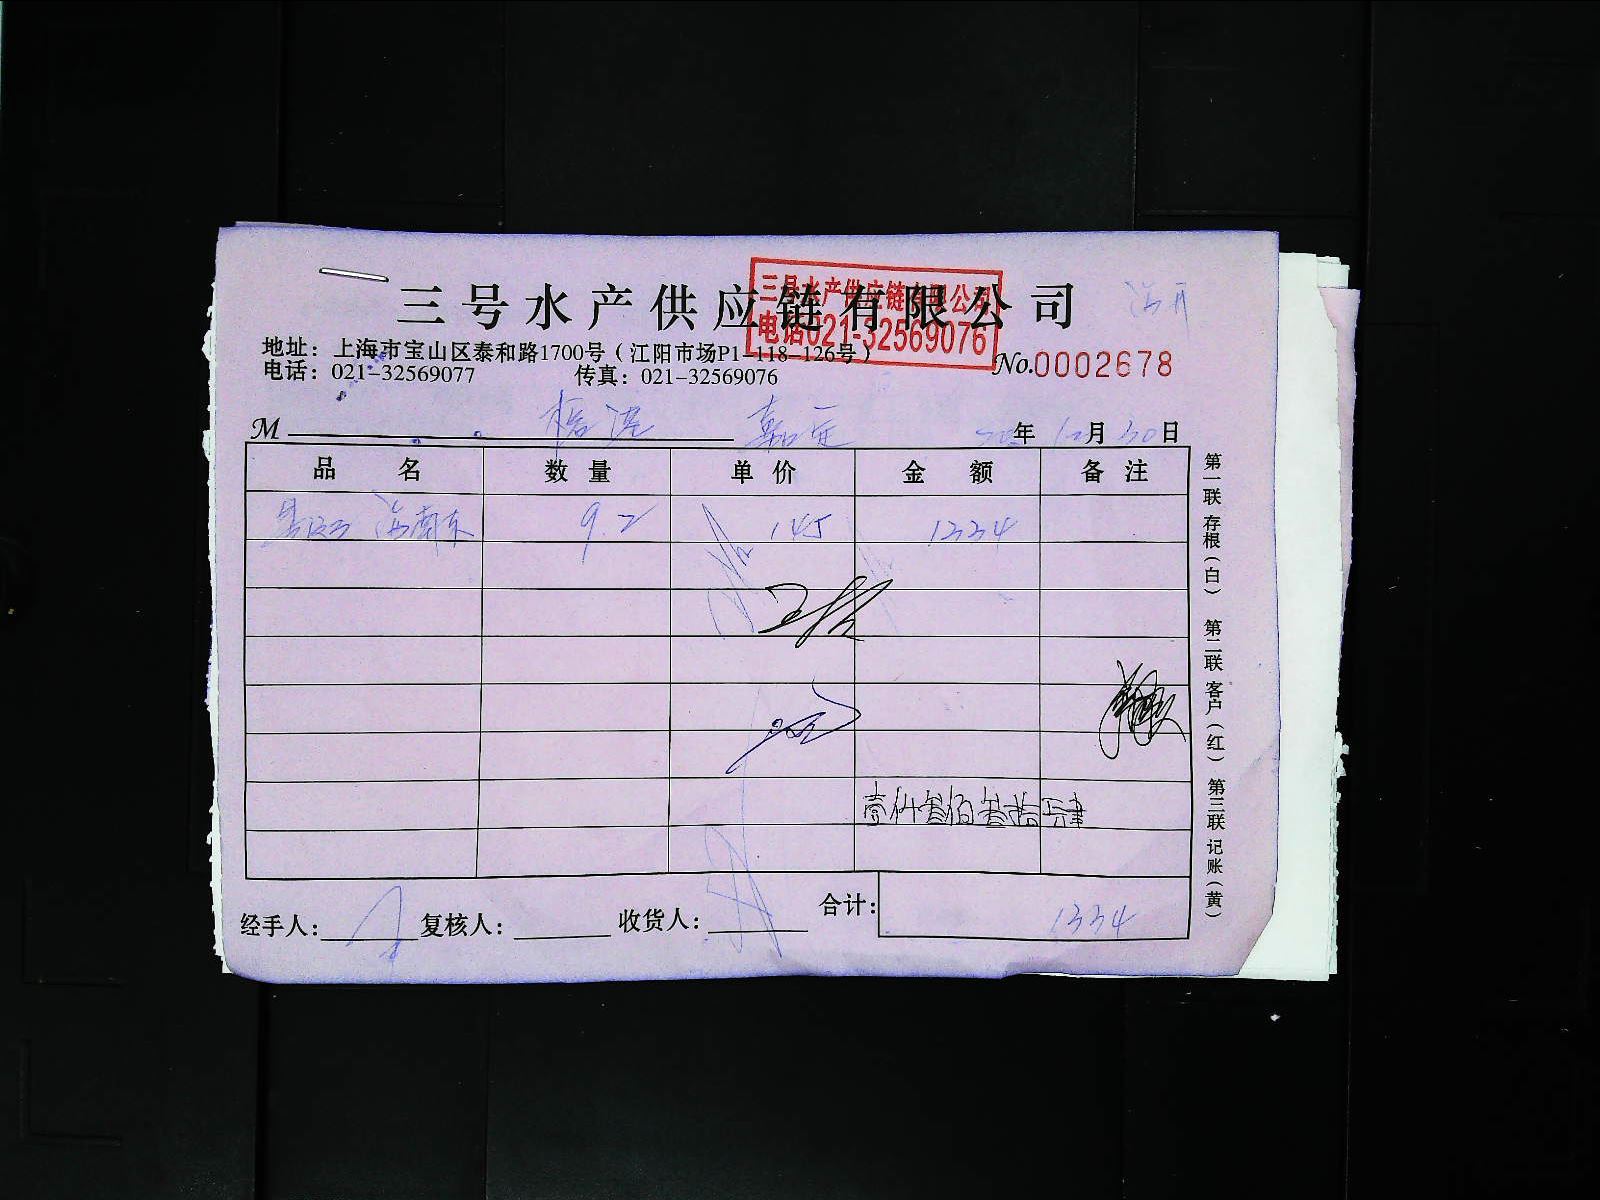 三号水产供应链有限公司
三号水产供应链有限公司
电话021-32569076
地址：上海市宝山区泰和路1700号（江阳市场P1-118-126号）
电话：021-32569077 传真：021-32569076
No.0002678
M 嘉定 年 12月30日
品名 数量 单价 金额 备注
海南东 9.2 145 1334
壹仟叁佰叁拾肆
合计： 1334
经手人： 复核人： 收货人：
第一联 存根（白） 第二联 客户（红） 第三联 记账（黄）